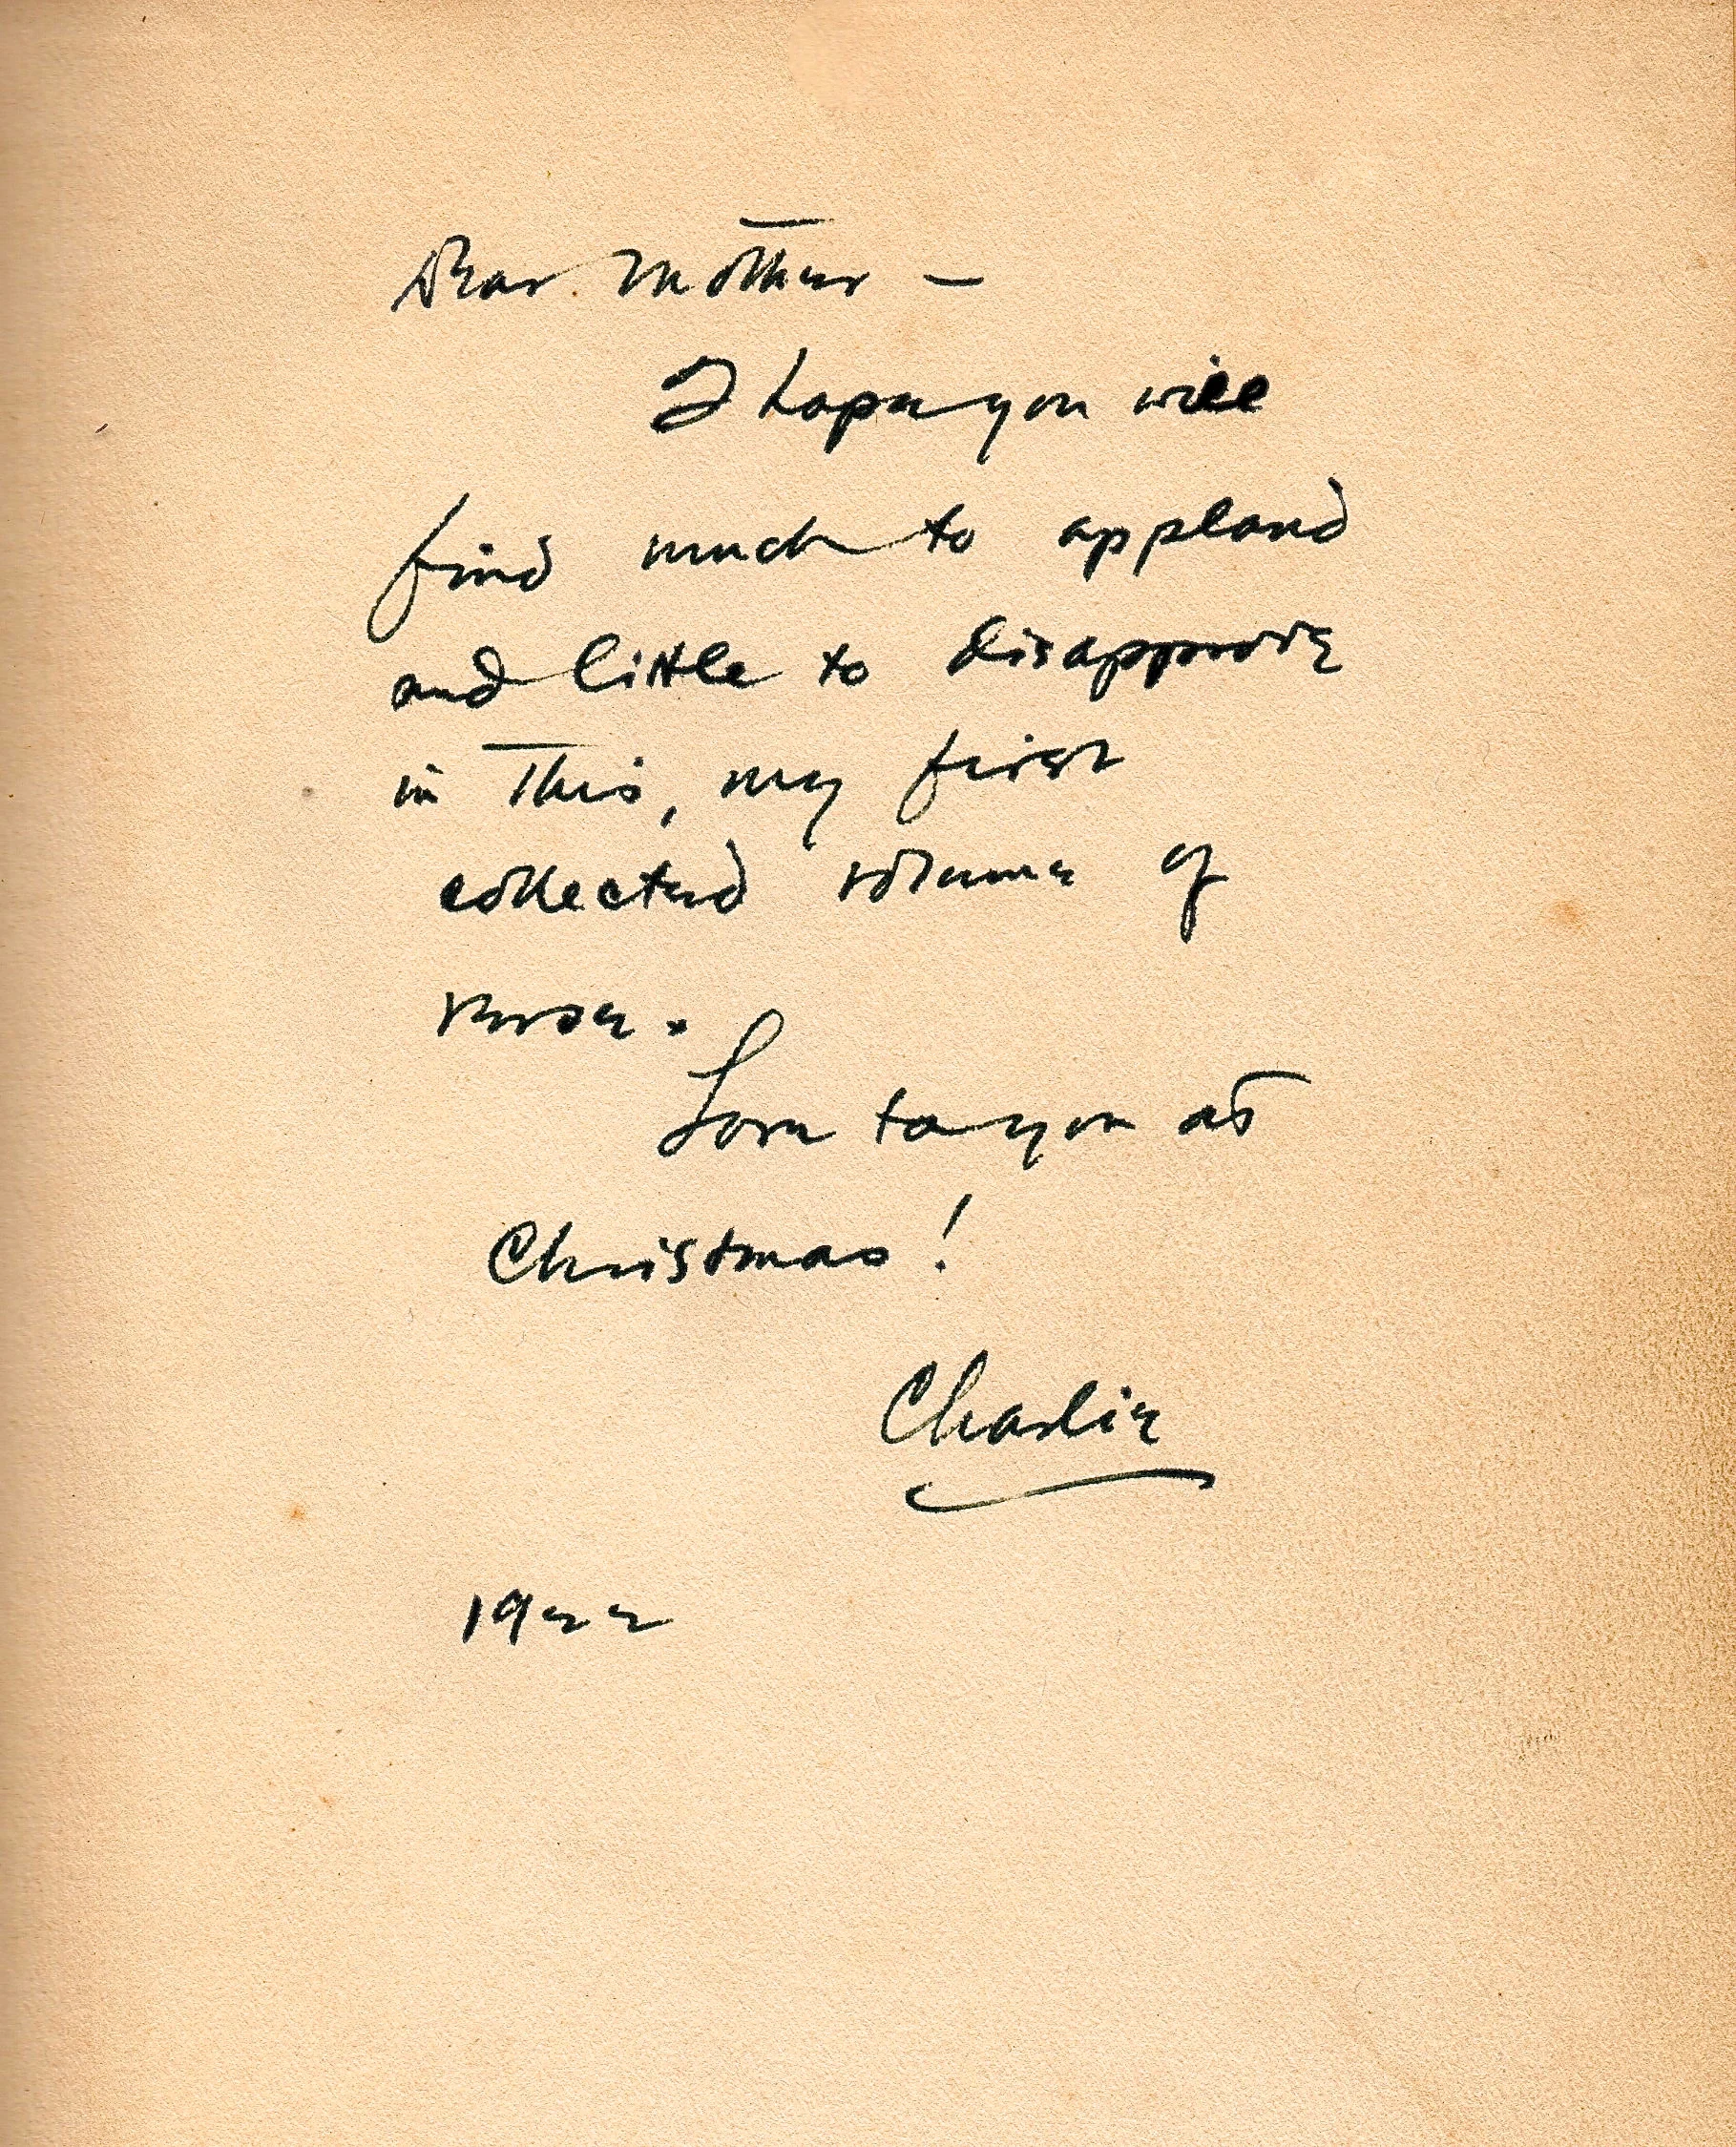 Dear Mother –
I hope you will
find much to applaud
and little to disapprove
in this, my first
collected volume of
verse.
Love to you at
Christmas!
Charlie
1922